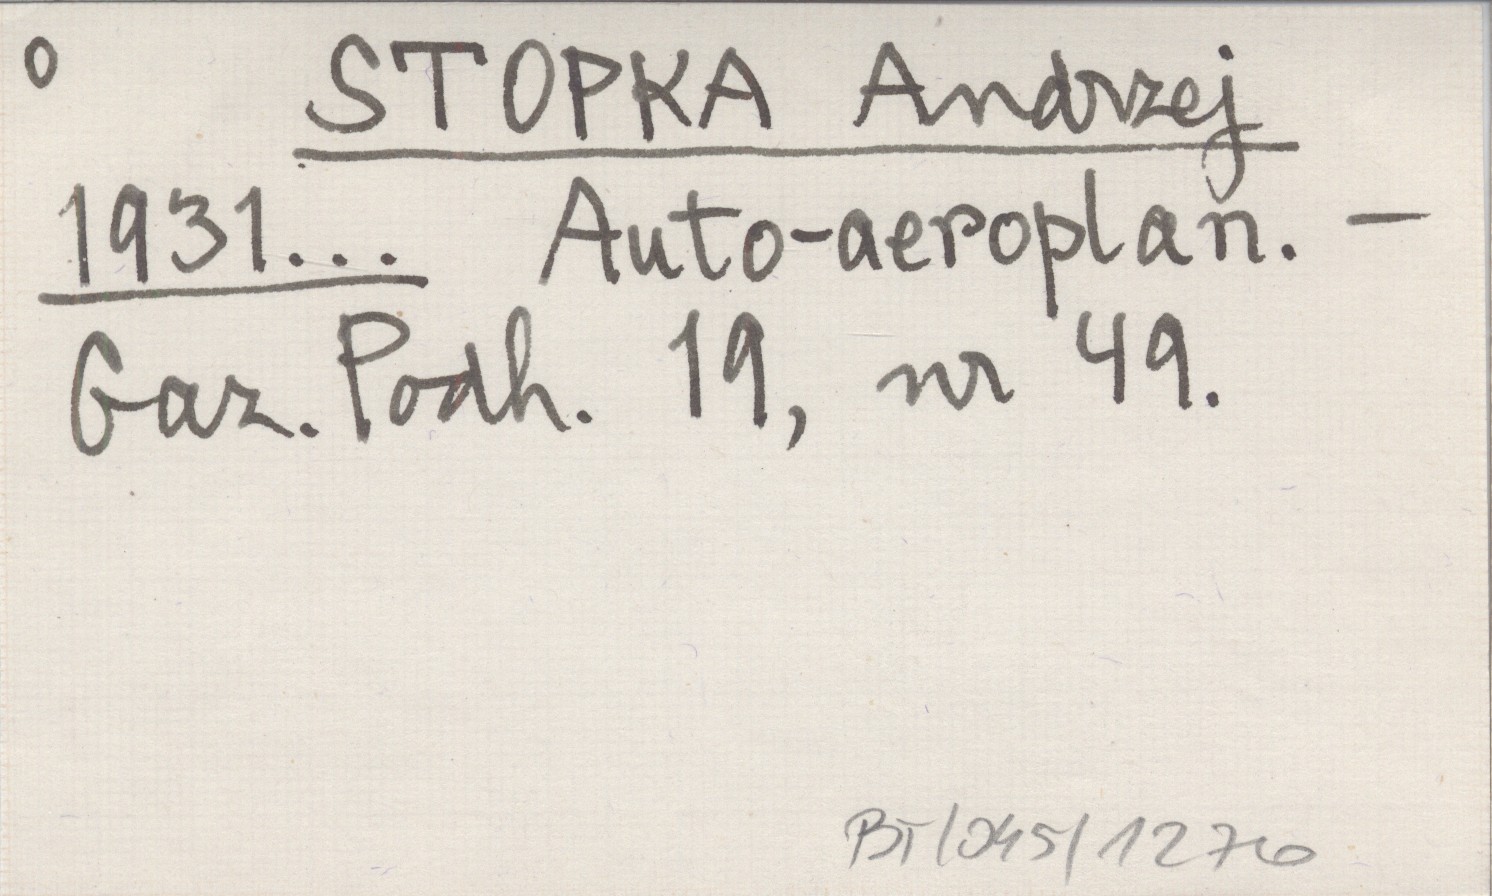 o STOPKA Andrzej
1931... Auto-aeroplan. —
Gaz. Podh. 19, nr 49.
BT/045/1276